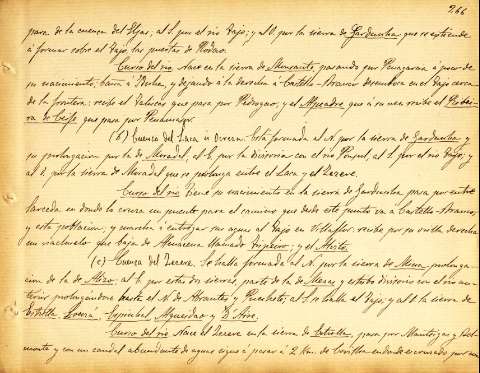 266
para de la cuenca del Eljas; al S. por el rio Tajo; y al O. por la sierra de Gardunha que se extiende
á formar sobre el Tajo las puertas de Rodao.
Curso del rio Nace en la sierra de Monsanto, pasando por Penagarcia á poco de
su nacimiento; baña á Idanha, y dejando á la derecha á Castello-Branco desemboca en el Tajo cerca
de la frontera: recibe el que pasa por y el que á su vez recibe el
de que pasa por Penamacor.
(b) Cuenca del Laca u Ocreza. Está formada al N. por la sierra de Gardunha y
su prolongacion por la de Moradal, al E. por la divisoria con el rio Ponsul, al S. por el rio Tajo; y
al O. por la sierra de Moradal que se prolonga entre el Laca y el Zezere.
Curso del rio Tiene su nacimiento en la sierra de Gardunha pasa por entre
Sarceda en donde lo cruza un puente para el camino que desde este punto va á Castello-Branco,
y esta poblacion; y marcha á entregar sus aguas al Tajo en Villaflor: recibe por su orilla derecha
un riachuelo que baja de Almaceira llamado y el
(c) Cuenca del Zezere. Se halla formada al N. por la sierra de prolonga-
cion de la de al E. por estas dos sierras, parte de la de Mesas y estribo divisorio con el rio an-
terior prolongandose hasta el N. de Abrantes y Punhete; al S. se halla el Tajo, y al O. la sierra de
Estrella, Espinhal, y D'Aire.
Curso del rio Nace el Zezere en la sierra de Estrella, pasa por Manteigas y Bel-
monte y con un caudal abundante de aguas sigue á pasar á 2 Km. de Covilha en donde es cruzado por un